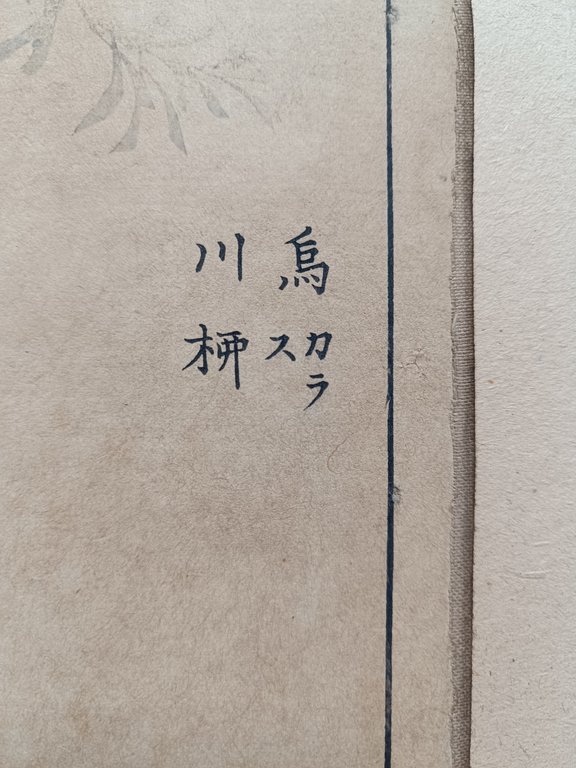 烏カラス
川柳